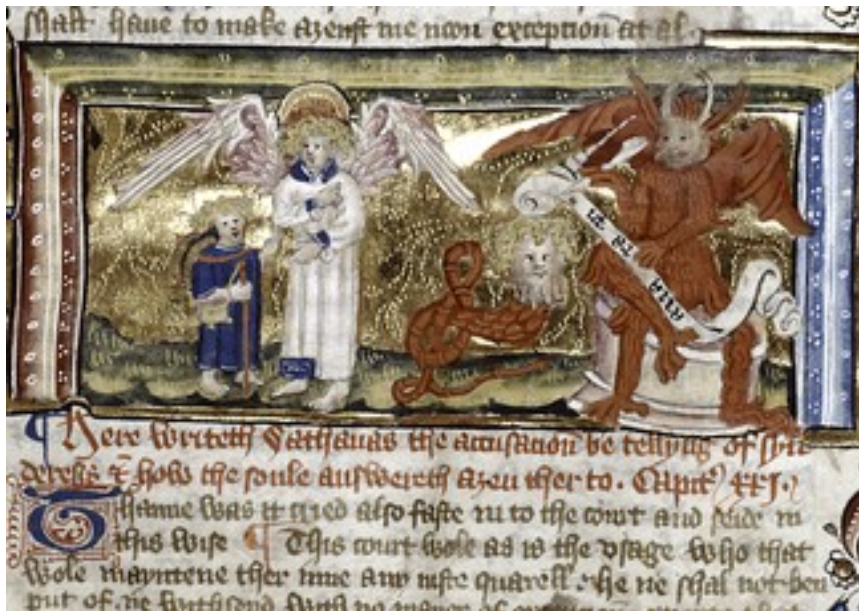 schalt haue to make azenst me noon exception at al.
Here writeth Sathanas the accusacioun be tellyng of syn
deresis & how the soule answereth azen ther to. Capitᵐ XXJ.
Thanne was it cried also faste in to the court and seide in
this wise ¶ This court wole as is the vsage who that
wole mayntene ther inne any iuste quarell he ne schal not ben
put of. ne withseid with no maner of